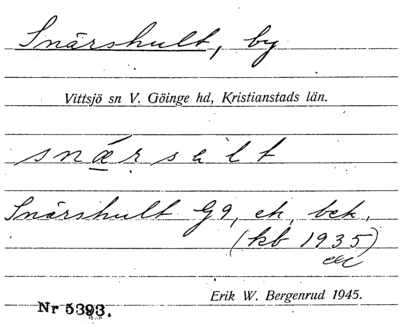 Snärshult, by
Vittsjö sn V. Göinge hd, Kristianstads län.
snæ̲rsålt
Snärshult G9, ek, bek.
(kb 1935)
Erik W. Bergenrud 1945.
Nr 5393.